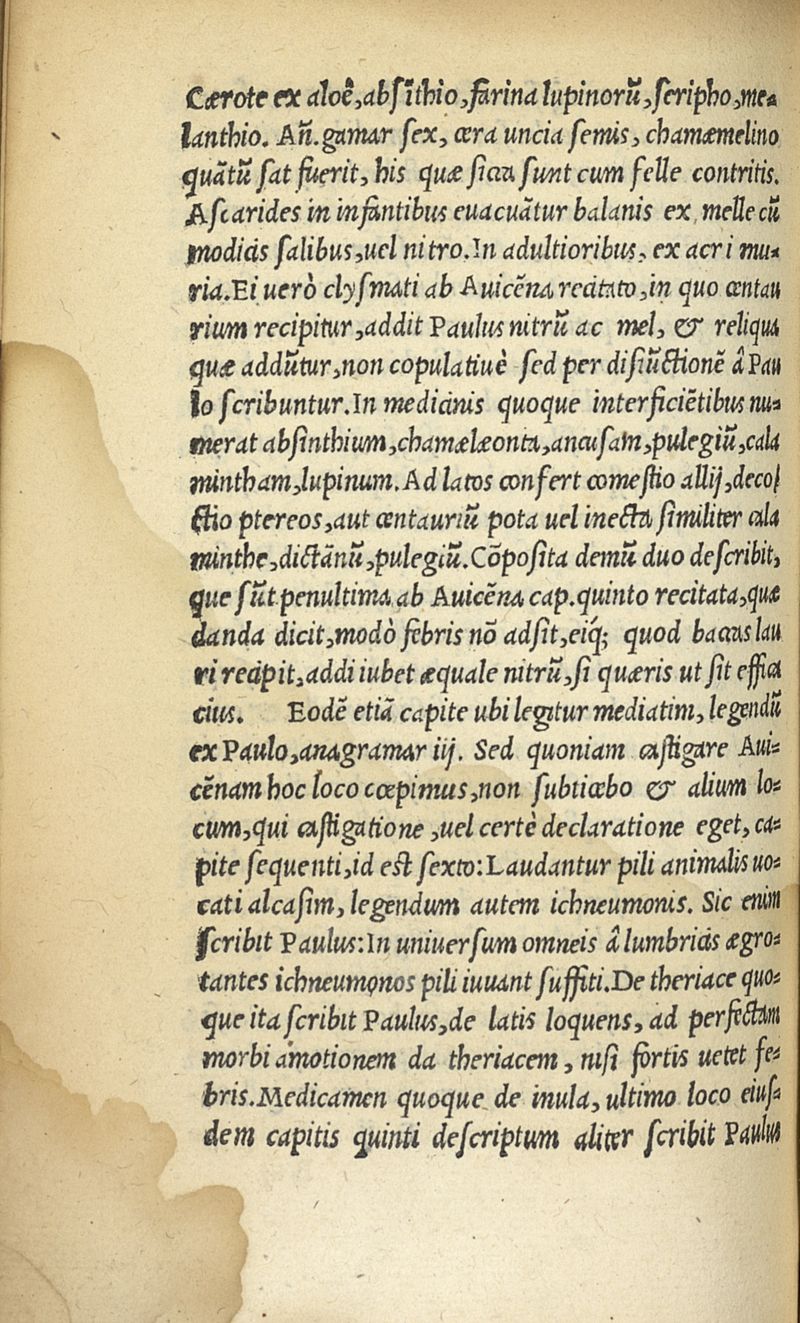 Cærote ex aloê, absĩthio, farina lupinorũ, scripho, me-
lanthio. Añ. gamar sex, cera uncia semis, chamæmelino
quãtũ sat fuerit, his quæ sicca sunt cum felle contritis.
Ascarides in infantibus euacuãtur balanis ex melle cũ
modicis salibus, uel nitro. In adultioribus, ex acri mu-
ria. Ei uerò clysmati ab Auicẽna recitato, in quo centau
rium recipitur, addit Paulus nitrũ ac mel, & reliqua
quæ addũtur, non copulatiuè sed per disiũctionẽ â Pau
lo scribuntur. In medicinis quoque interficiẽtibus nu-
merat absinthium, chamæleonta, ancusam, pulegiũ, cala
mintham, lupinum. Ad latos confert comestio allij, deco
ctio ptereos, aut centauriũ pota uel iniecta similiter cala
minthe, dictãnũ, pulegiũ. Cõposita demũ duo describit,
que sũt penultima ab Auicẽna cap. quinto recitata, quæ
danda dicit, modò febris nõ adsit, eiq́; quod baccas lau
ri recipit, addi iubet æquale nitrũ, si quæris ut sit effica
cius. Eodẽ etiã capite ubi legitur mediatim, legendũ
ex Paulo, anagramar iij. Sed quoniam castigare Aui-
cẽnam hoc loco cœpimus, non subticebo & alium lo-
cum, qui castigatione, uel certè declaratione eget, ca-
pite sequenti, id est sexto: Laudantur pili animalis uo-
cati alcasim, legendum autem ichneumonis. Sic enim
scribit Paulus: In uniuersum omneis â lumbricis ægro-
tantes ichneumonos pili iuuant suffiti. De theriace quo-
que ita scribit Paulus, de latis loquens, ad perfectam
morbi amotionem da theriacem, nisi fortis uetet fe-
bris. Medicamen quoque de inula, ultimo loco eiusa
dem capitis quinti descriptum aliter scribit Paulus